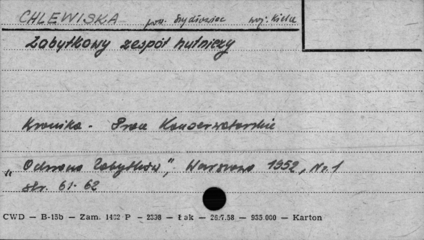 CHLEWISKA pow. Szydłowiec woj. Kielce
Zabytkowy zespół hutniczy
Kronika - Prace Konserwatorskie
"Ochrona Zabytków", Warszawa 1952, Nr. 1
str. 61-62
CWD — B-15b — Zam. 1422 P — 2338 — Łok — 26.7.58 — 935.000 — Karton